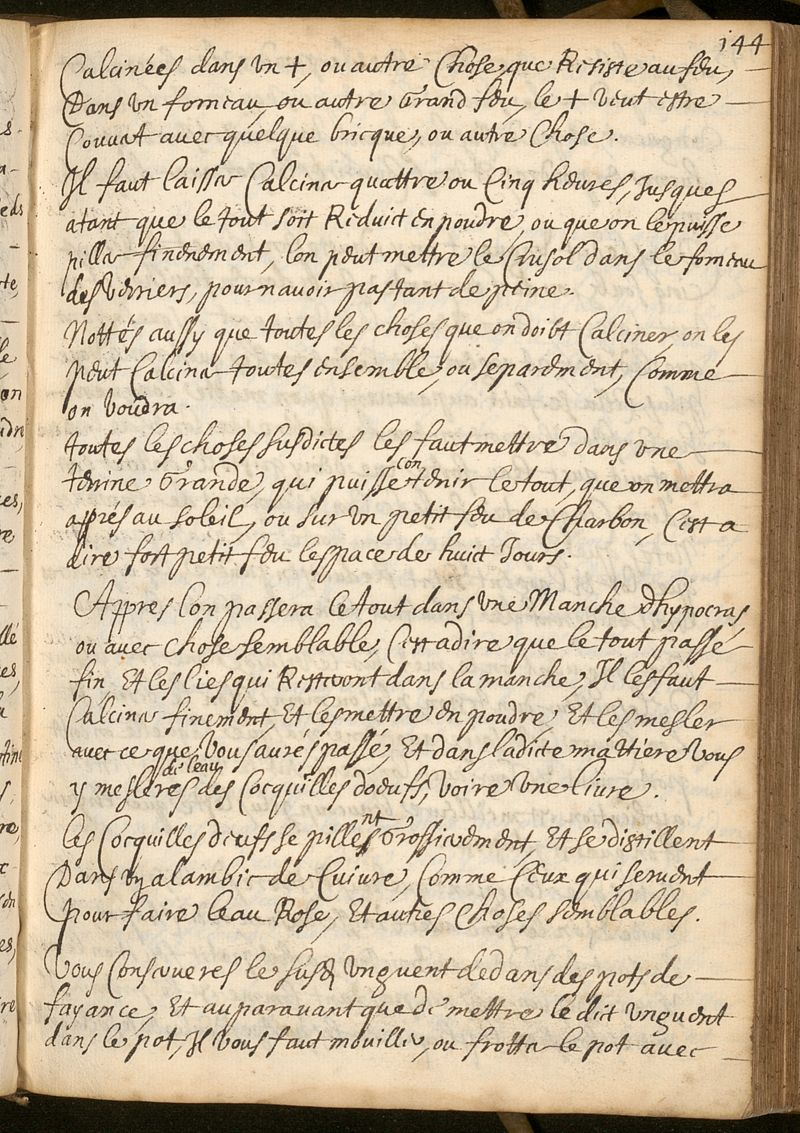 144
Calcinées dans vn +, ou autre Chose que Resiste au feu,
Dans vn forneau, ou autre Grand feu, le + veut estre
Couuert auec quelque bricque, ou autre Chose.
Il faut laisser Calciner quattre ou Cinq heures, Jusques
atant que le tout soit Reduict en poudre, ou que on le puisse
piller finenement, lon peut mettre le Crusol dans le forneau
des Verriers, pour nauoir pas tant de peine.
Nottés aussy que toutes les choses que on doibt Calciner on les
peut Calciner toutes ensemble, ou separement, Comme
on voudra.
toutes les choses susdictes les faut mettre dans vne
terrine Grande, qui puisse contenir le tout, que on mettra
apprés au soleil, ou sur vn petit feu de Charbon, Cest a
dire fort petit feu lespace de huict Jours.
Appres lon passera le tout dans vne Manche dhypocras
ou auec chose semblable, Cest adire que le tout passé
fin Et les lies qui Resteront dans la manche, Il les faut
Calciner finement, Et les mettre en poudre Et les mesler
auec ce que Vous aurés passé, Et dans ladicte mattiere Vous
de leau
y mesleres des Cocquilles doeufs, voire vne liure.
les Cocquilles deufs se pillent Grossierement, Et se distillent
Dans vn alambic de Cuiure, Comme Ceux qui seruent
pour faire leau Rose, Et autres Choses semblables.
Vous Conserueres le susd vnguent dedans des pots de
fayance, Et auparauant que de mettre le dict vnguent
dans le pot, Il vous faut mouiller, ou frotter le pot auec